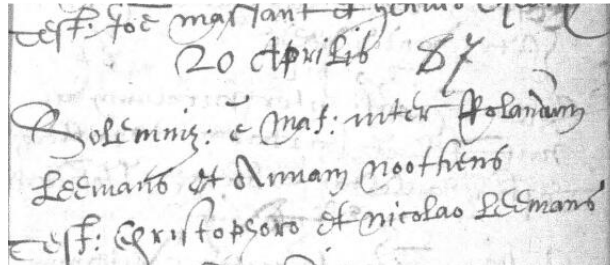 Test: Joē mastant et
20 Aprilis 87
Solemniz: ē Mat: inter Rolandum
Leemans et Annam Noothens
Test: Christophoro et Nicolao Leemans